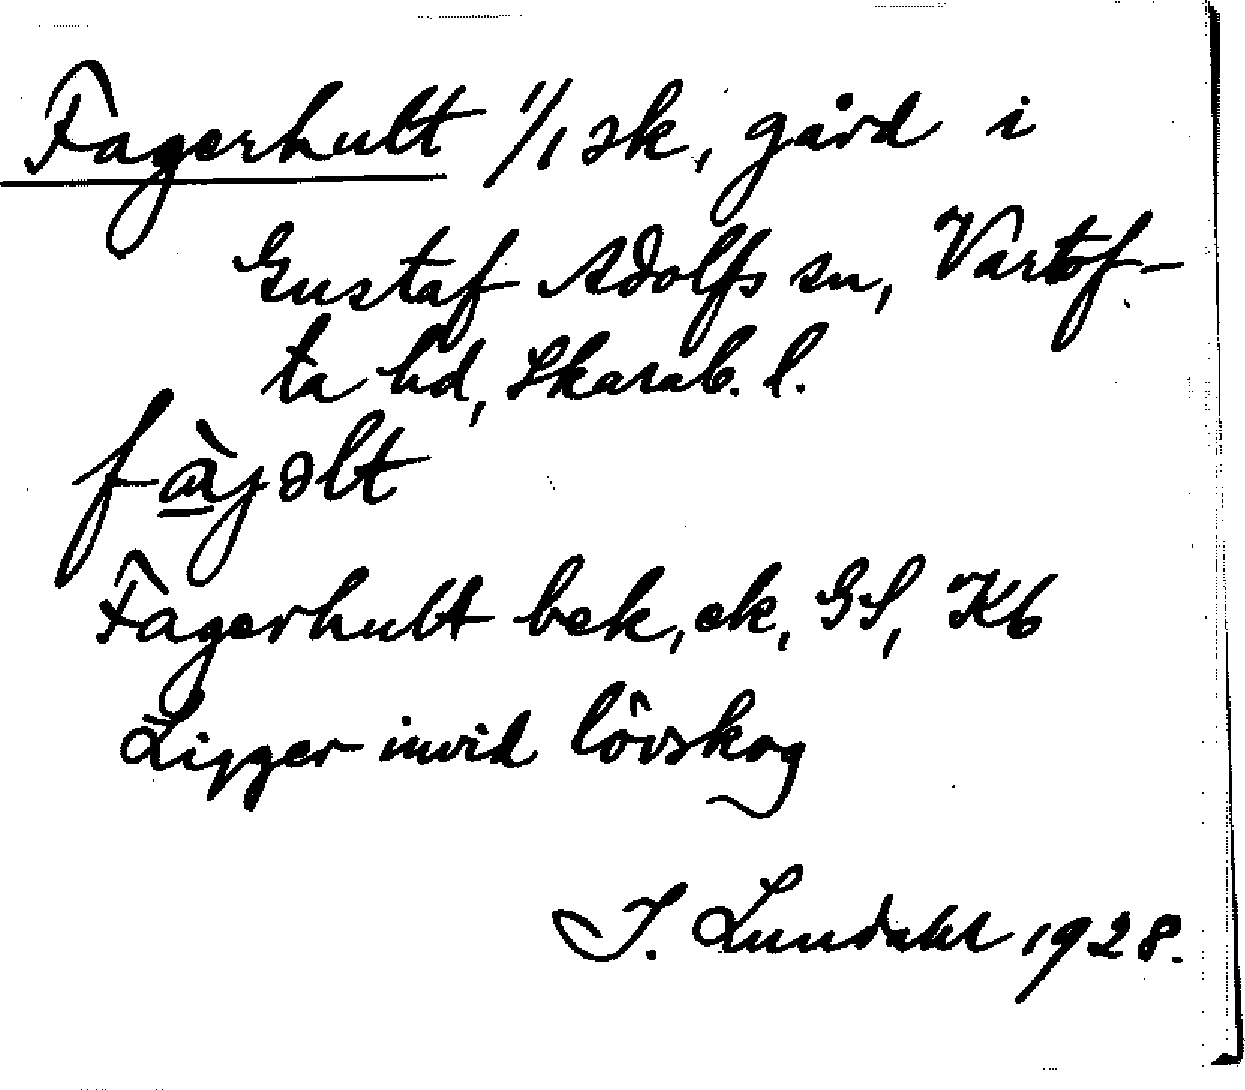 Fagerhult 1/1 sk, gård i
Gustaf Adolfs sn, Vartof-
ta hd, Skarab. l.
fàjolt
Fagerhult bek, ek, GS, Kb
Ligger invid lövskog
I. Lundahl 1928.